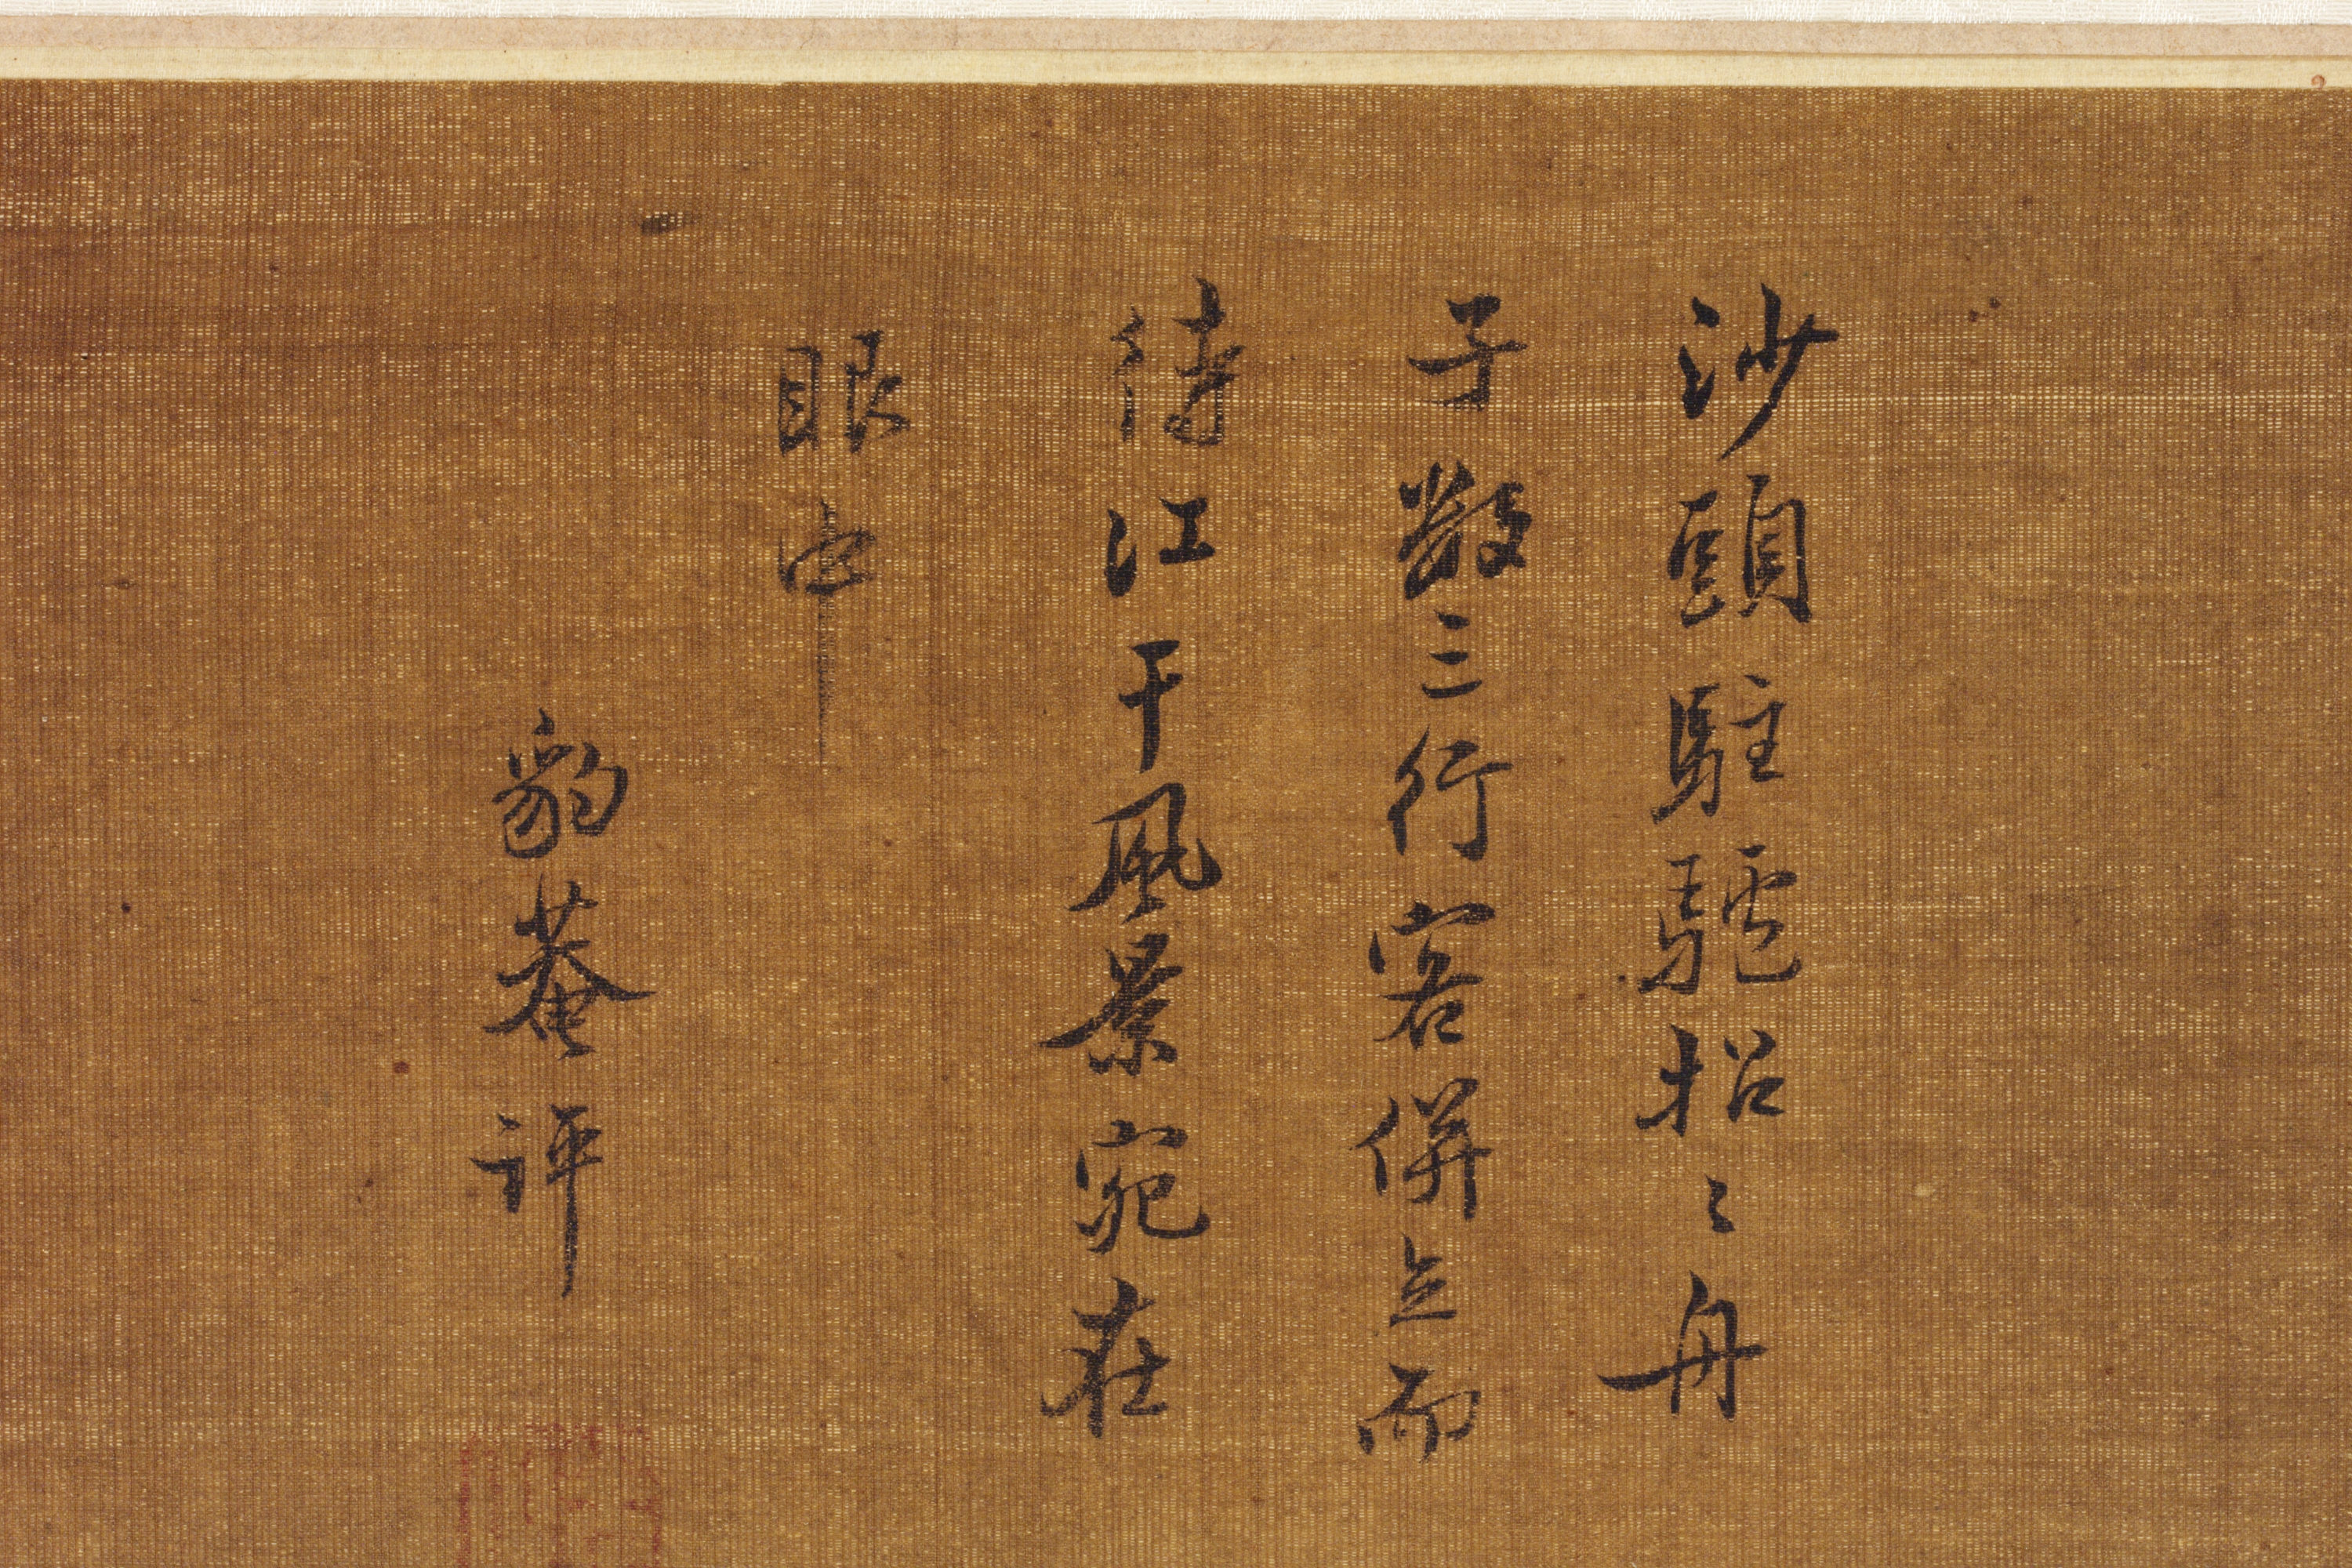 沙頭駐驢招〻舟
子數三行客併立而
待江干風景宛在
眼中
豹菴評